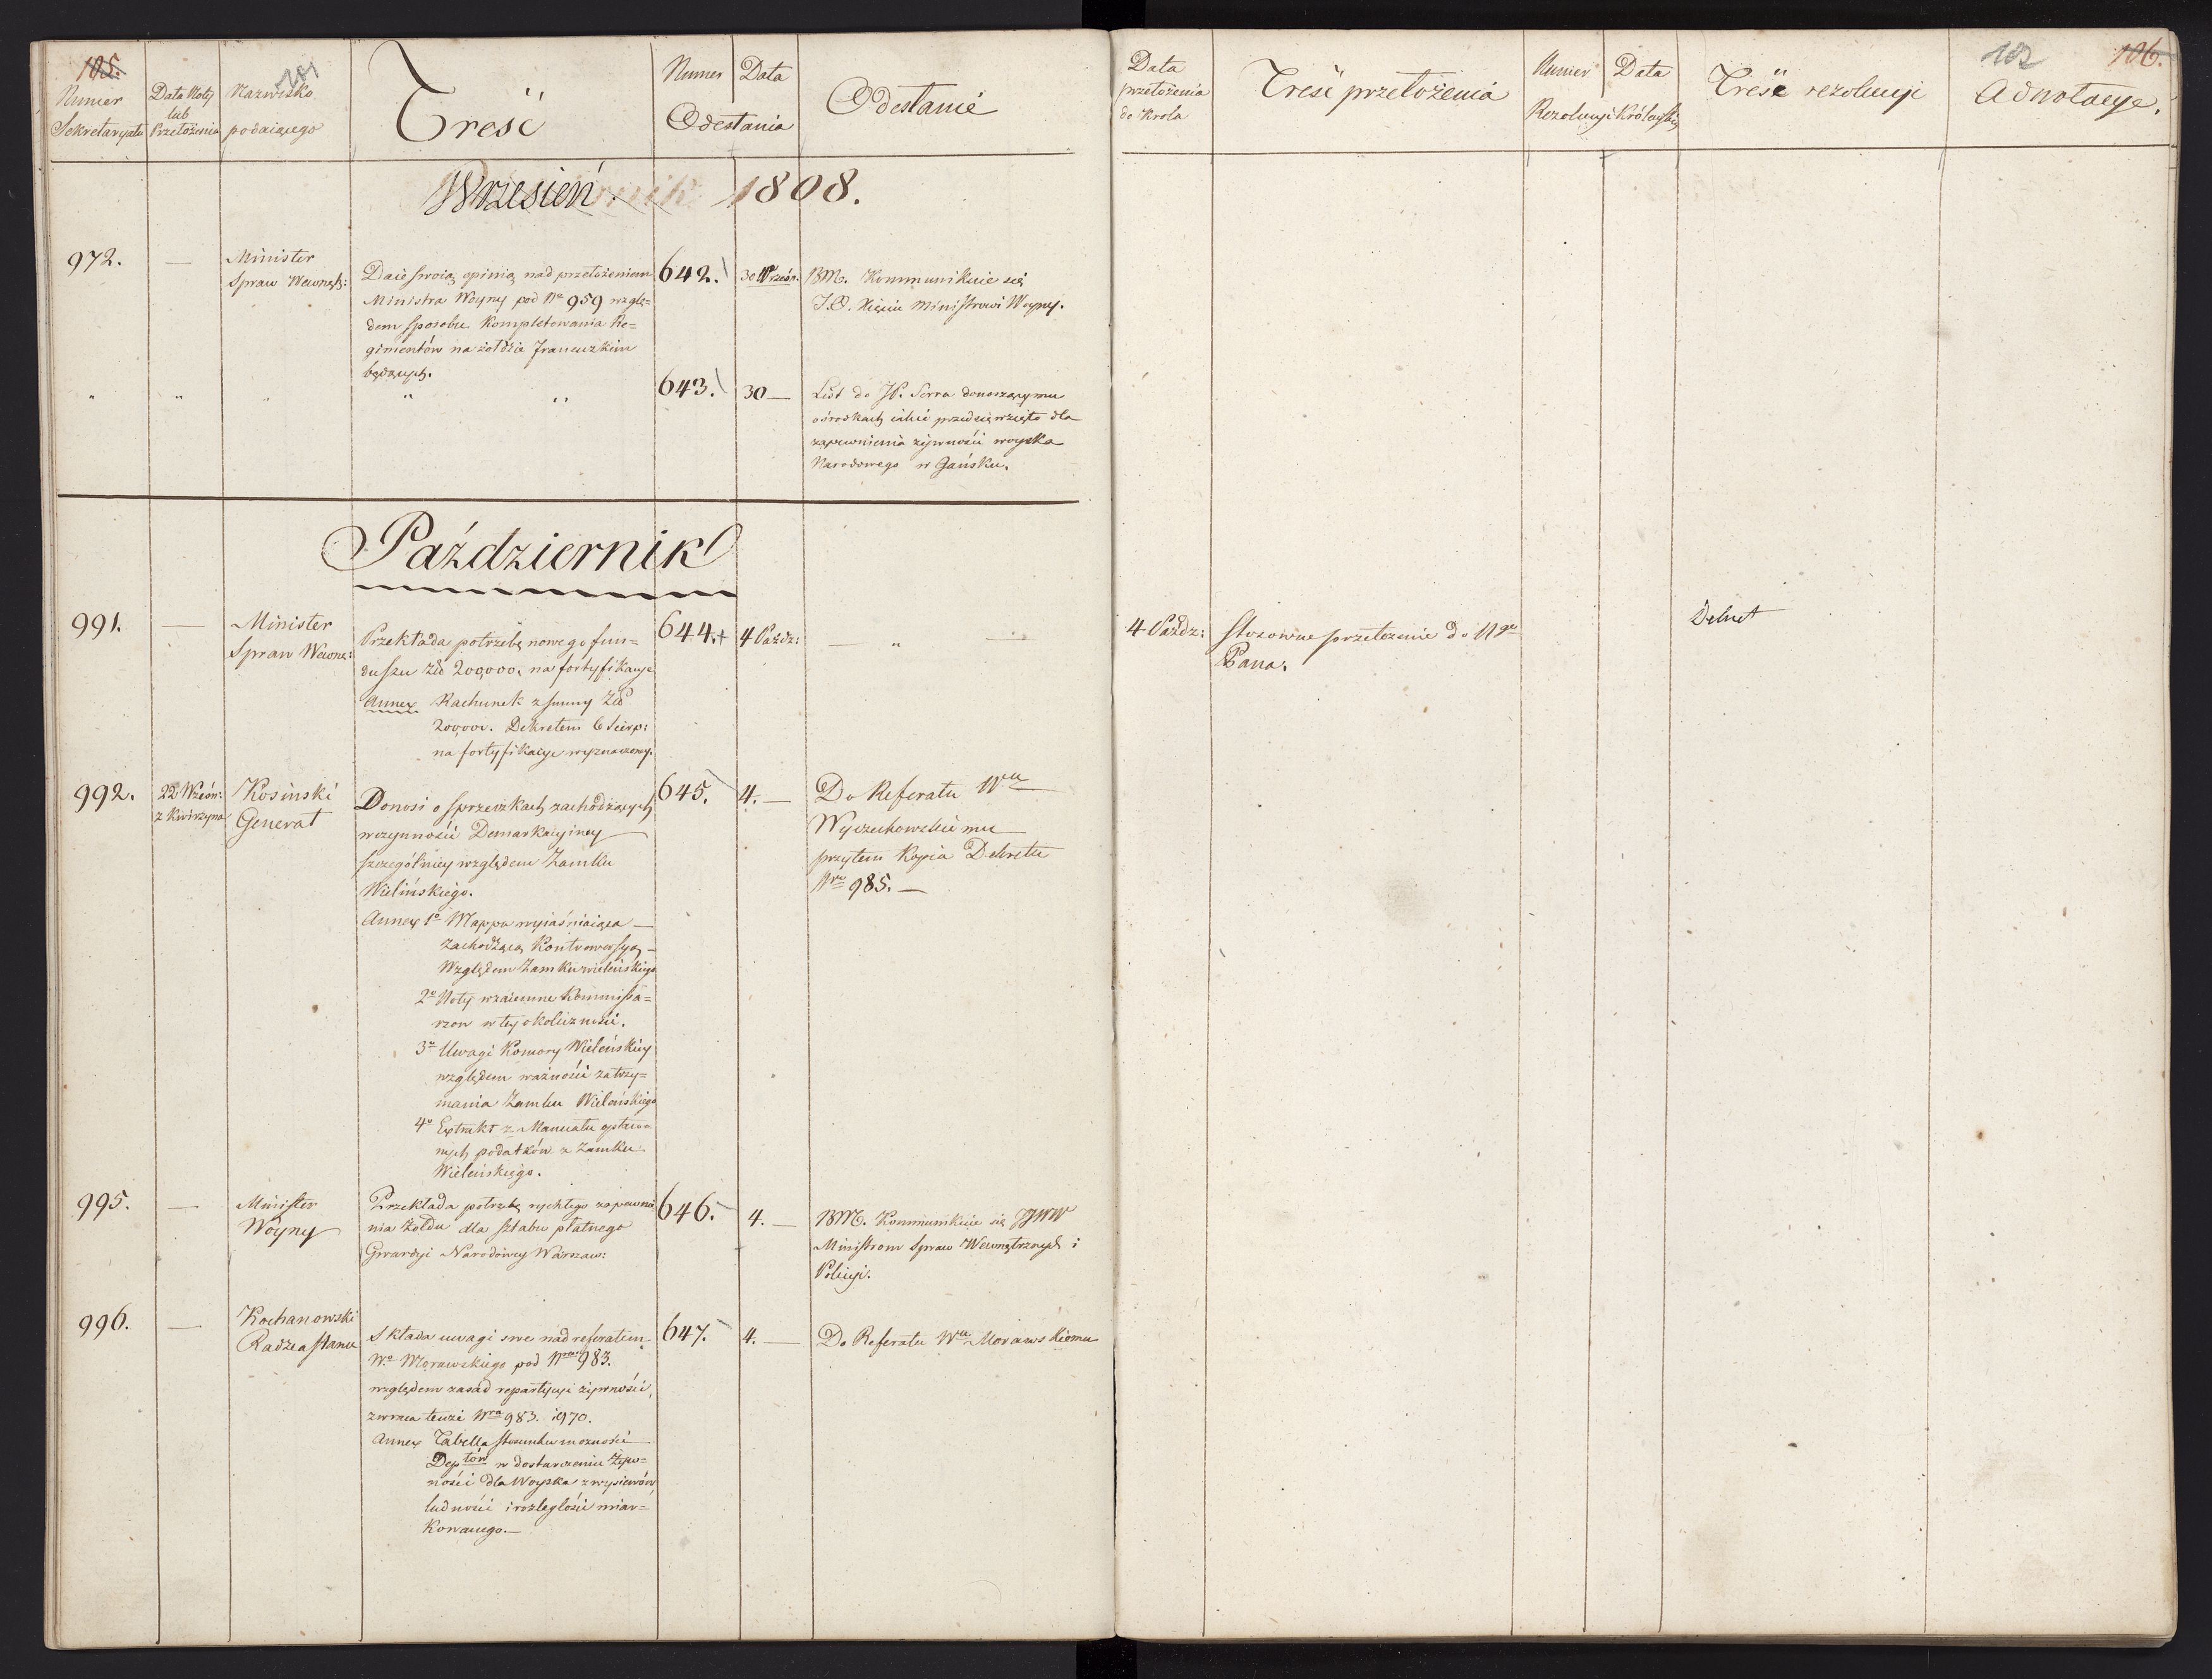 105. 101
Numer Sekretaryatu
Data Noty lub Przełożenia
Nazwisko podaiącego
Treść
Numer Data
Odesłania
Odesłanie
Wrzesień 1808.
972. — Minister
Spraw Wewnętr:
Daie swoią opinią nad przełożeniem
Ministra Woyny pod Nº 959 wzglę=
dem sposobu kompletowania Re=
gimentów na żołdzie francuzkim
będących.
642. 30 Wrześn.
BM. Kommunikuie się
J.O. Xięciu Ministrowi Woyny.
" " " " "
643. 30 —
List do JP. Serra donoszący mu
o środkach iakie przedsięwzięto dla
zapewnienia żywności woyska
Narodowego w Gańsku.
Październik
991. — Minister
Spraw Wewnę:
Przekłada potrzebę nowego fun=
duszu Złł 200,000. na fortyfikacye
Annex Rachunek z summy Złł
200,000. Dekretem 6 Sierp:
na fortyfikacye wyznaczoney.
644.+ 4 Paźdz: — " —
992. 22 Wześn:
z Kwirzyna
Kosinski
Generał
Donosi o sprzeczkach zachodzących
w czynności Demarkacyiney —
szczególniey względem Zamku
Wielińskiego.
Annex 1º Mappa wyiaśniaiąca —
zachodzącą Kontrowersyą —
Względem Zamku wieleńskiego
2º Noty wzaiemne Kommissa=
rzow w tey okoliczności.
3º Uwagi Komory Wieleńskiey
względem ważności zatrzy=
mania Zamku Wieleńskiego
4º Extrakt z Manuału opłaco=
nych podatków z Zamku
Wieleńskiego.
645. 4. —
Do Referatu Wu —
Wyczechowskiemu —
przytem Kopia Dekretu
Nro 985. —
995. — Minister
Woyny
Przekłada potrzebę rychłego zapewnie
nia Żołdu dla sztabu płatnego
Gwardyi Narodowey Warszaw:
646. 4. —
BM. Kommunikuie się JJWW
Ministrom Spraw Wewnętrznych i
Policyi.
996. — Kochanowski
Radzca Stanu
Składa uwagi swe nad referatem
Wo Morawskiego pod Nrem 983.
względem zasad repartycyi żywności,
zwraca tenże Nra 983. i 970.
Annex Tabella stosunku możności —
Deptów w dostarczeniu żyw=
ności dla Woyska z wysiewów
ludności i rozległości miar=
kowanego. —
647. 4. —
Do Referatu Wu Morawskiemu
102 106.
Data przełożenia do Krola
Treść przełożenia
Numer Data
Rezolucyi Królewskiey
Treść rezolucyi
Adnotacye.
4 Paźdz:
Stosowne przełożenie do Ngo
Pana.
Dekret